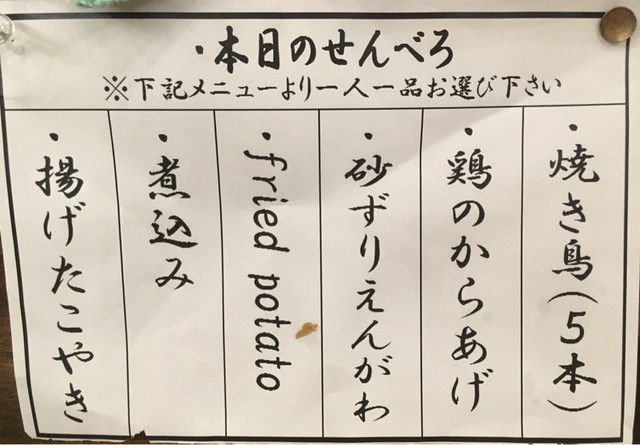 ・本日のせんべろ
※下記メニューより一人一品お選び下さい
・焼き鳥(5本)
・鶏のからあげ
・砂ずりえんがわ
・fried potato
・煮込み
・揚げたこやき